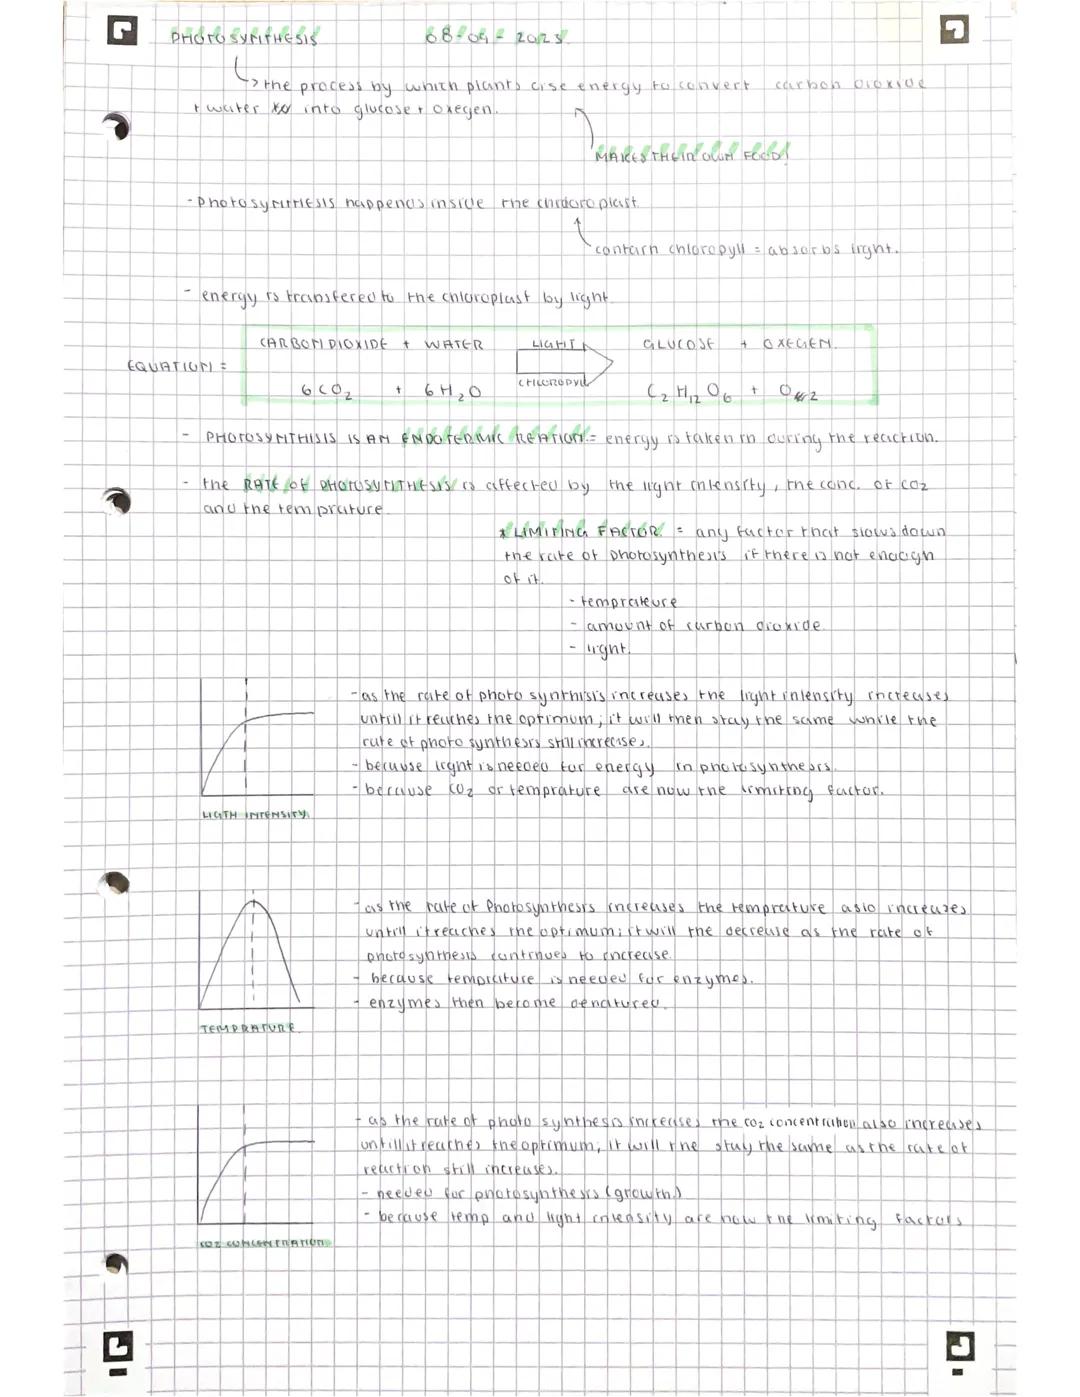 PHOTOSYNTHESIS 08-09-2023
↳ the process by which plants use energy to convert carbon dioxide
+ water into glucose + oxegen.
MAKES THEIR OWN FOOD!
- Photosynthesis happends inside the chrloroplast
contain chloropyll = absorbs light.
- energy is transfered to the chloroplast by light.
CARBON DIOXIDE + WATER LIGHT GLUCOSE + OXEGEN.
EQUATION =
6CO₂ + 6H₂O CHLOROPYLL C₂H₁₂O₆ + O₂
- PHOTOSYNTHISIS IS AN ENDOTERMIC REATION = energy is taken in during the reaction.
- the RATE OF PHOTOSYNTHESIS is affected by the light intensity, the conc. of CO2
and the temprature.
* LIMITING FACTOR. = any factor that slows down
the rate of photosynthesis if there is not enough
of it.
- temprateure
- amount of carbon dioxide.
- light.
- as the rate of photo synthisis increases the light intensity increases
untill it reaches the optimum; it will then stay the same while the
rate of photo synthesis still increises.
- because light is needed for energy in photosynthesis.
- because CO₂ or temprature are now the limiting factor.
LIGTH INTENSITY.
- as the rate of Photosynthesis increases the temprature aslo increases
untill it reaches the optimum; it will the decrease as the rate of
photosynthesis continues to increase.
- because temprature is needed for enzymes.
- enzymes then become denatured.
TEMPRATURE.
- as the rate of photo synthesis increases the CO2 concentration also increases
untill it reaches the optimum; it will the stay the same as the rate of
reaction still increases.
- needed for photosynthesis (growth)
- because temp and light intensity are now the limiting factors
CO2 CONCENTRATION